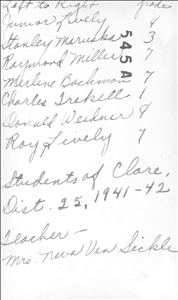 Left to Right Grade
Junior Lively 4
Stanley Maruska 3
Raymond Miller 7
Merlene Bachman 7
Charles Trekell 1
Donald Weidner 8
Roy Lively 7
545A
Students of Clare,
Dist. 25, 1941-42
Teacher -
Mrs. Neva Van Sickle